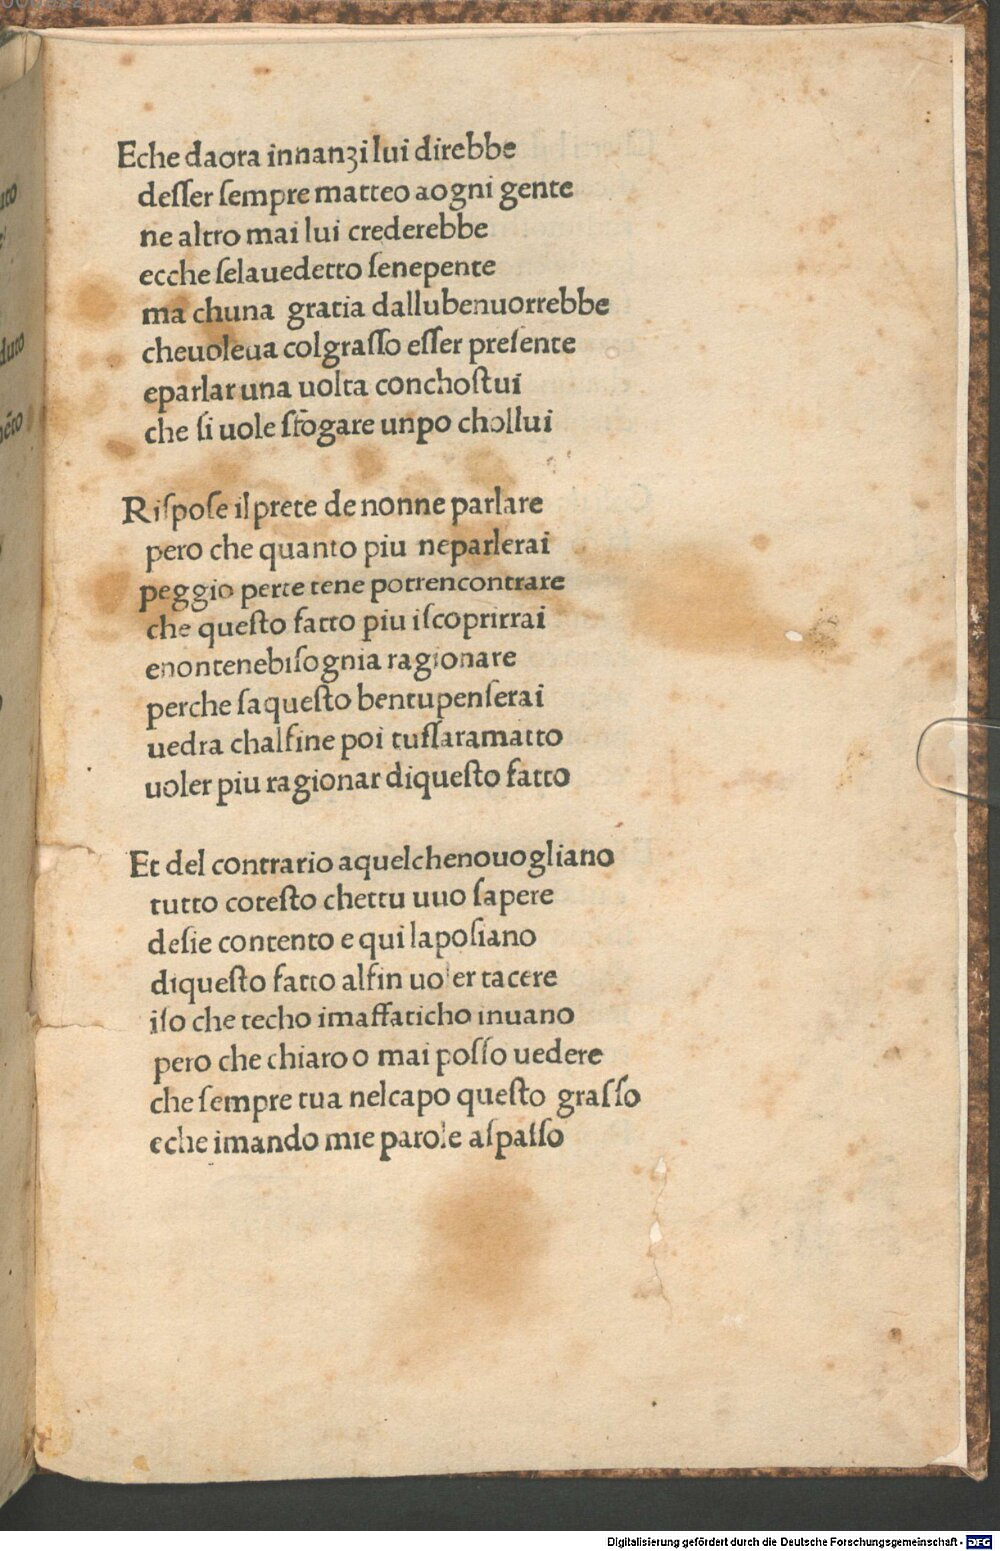 Eche daora innanzi lui direbbe
deſſer ſempre matteo aogni gente
ne altro mai lui crederebbe
ecche ſelauedetto ſenepente
ma chuna gratia dallubenuorrebbe
cheuoleua colgraſſo eſſer preſente
eparlar una uolta conchoſtui
che ſi uole ſfogare unpo chollui
Riſpoſe ilprete de nonne parlare
pero che quanto piu neparlerai
peggio perte tene potrencontrare
che queſto fatto piu iſcoprirrai
enontenebiſognia ragionare
perche ſaqueſto bentupenſerai
uedra chalfine poi tuſſaramatto
uoler piu ragionar diqueſto fatto
Et del contrario aquelchenouogliano
tutto coteſto chettu uuo ſapere
deſie contento e qui lapoſiano
diqueſto fatto alfin uoler tacere
iſo che techo imaffaticho inuano
pero che chiaro o mai poſſo uedere
che ſempre tua nelcapo queſto graſſo
eche imando mie parole aſpaſſo
uto
duto
Digitalisierung gefördert durch die Deutsche Forschungsgemeinschaft - DFG